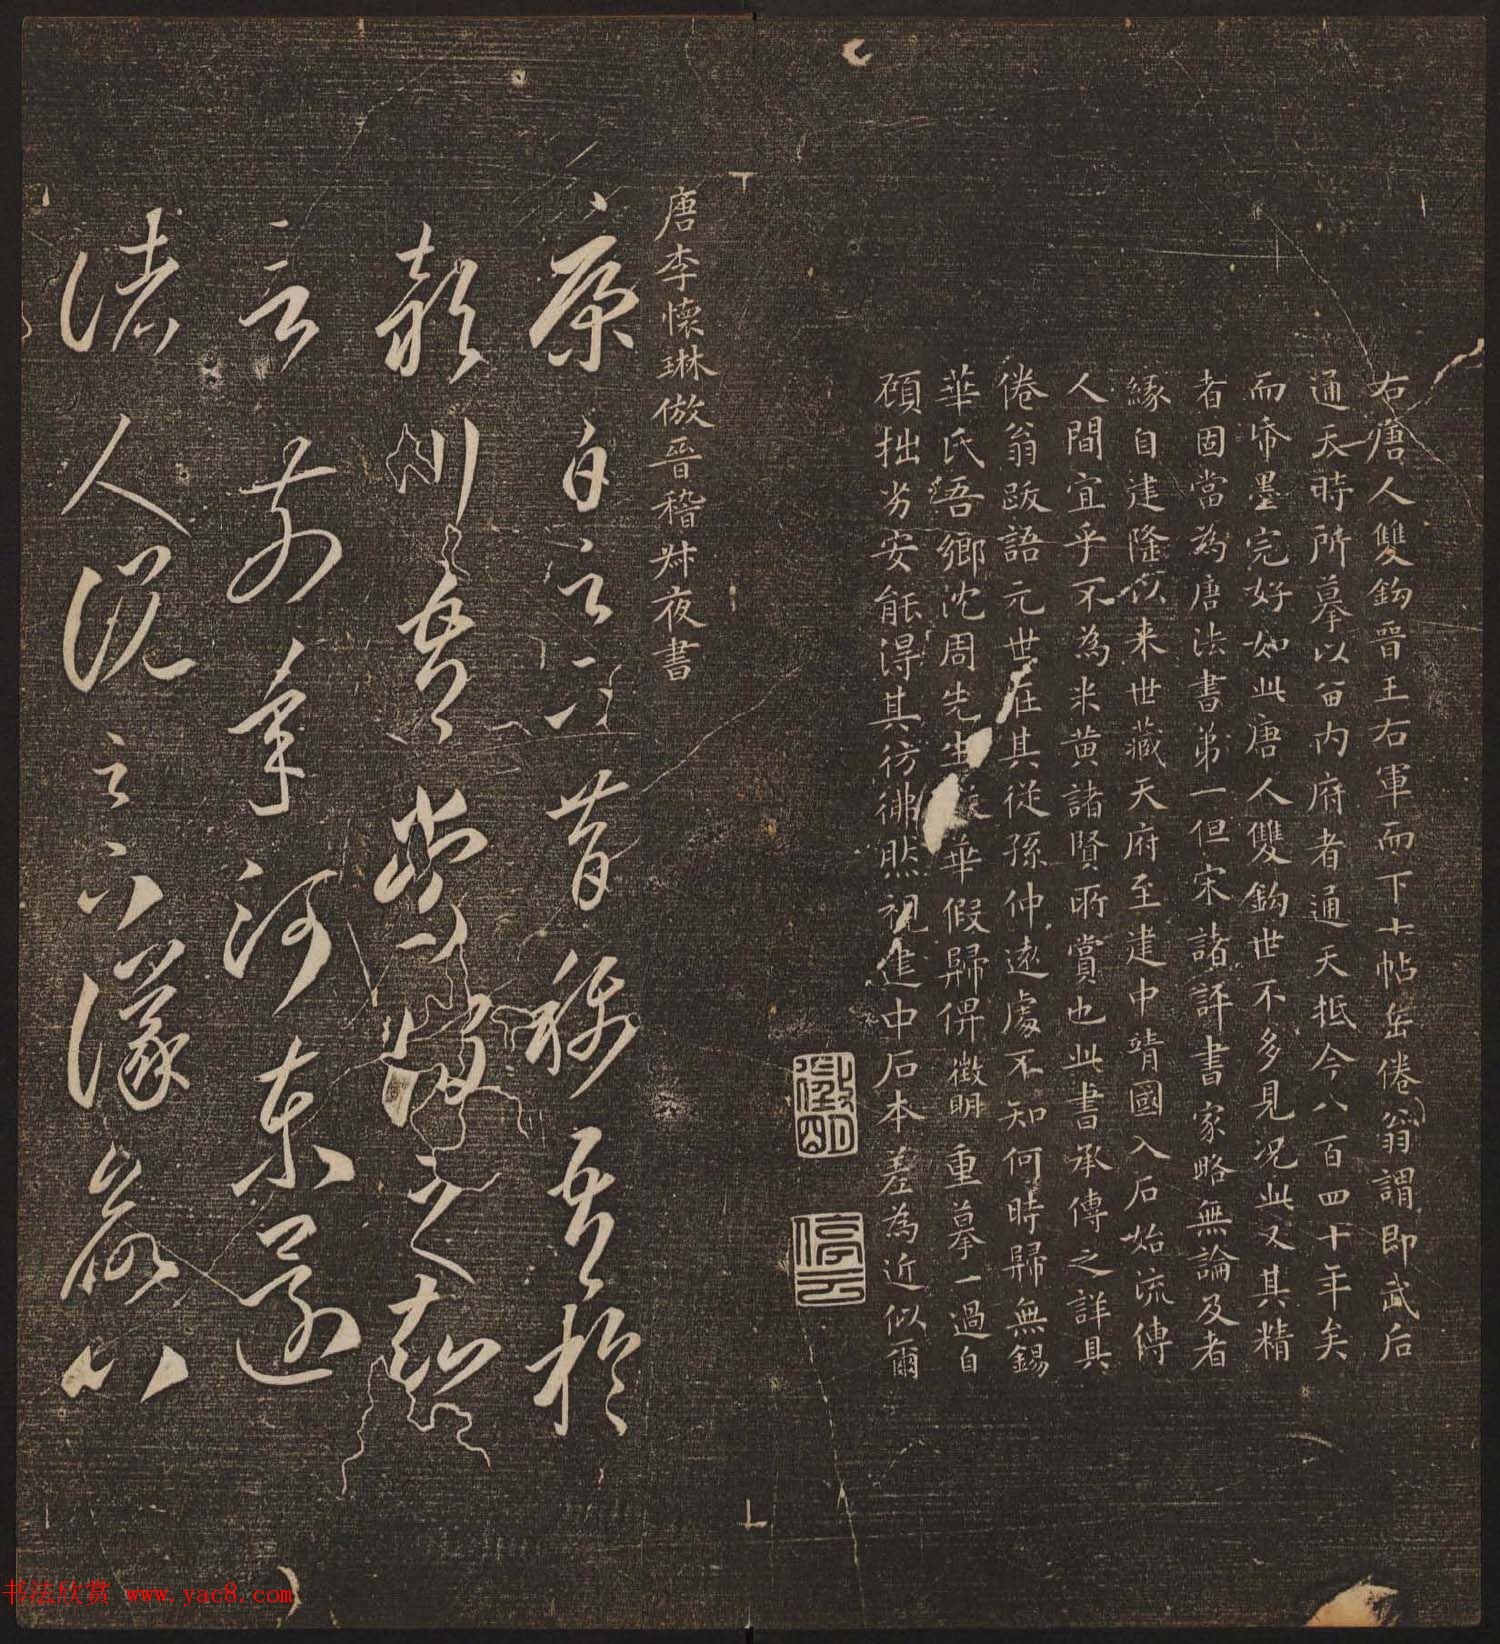 右唐人雙鈎晉王右軍而下十帖岳倦翁謂即武后
通天時所摹以留內府者通天抵今八百四十年矣
而紙墨完好如此唐人雙鈎世不多見況此又其精
者固當為唐法書第一但宋諸評書家略無論及者
緣自建隆以來世藏天府至建中靖國入石始流傳
人間宜乎不為米黃諸賢所賞也此書承傳之詳具
倦翁跋語元世在其從孫仲遠處不知何時歸無錫
華氏吾鄉沈周先生從華假歸俾徵明重摹一過自
顧拙劣安能得其彷彿然視建中石本差為近似爾
徵明
停雲
唐李懷琳倣晉嵇叔夜書
康白足下昔稱吾於
潁川吾嘗謂之知
言前年河東還
諸人說足下議以吾以
书法欣赏 www.yac8.com